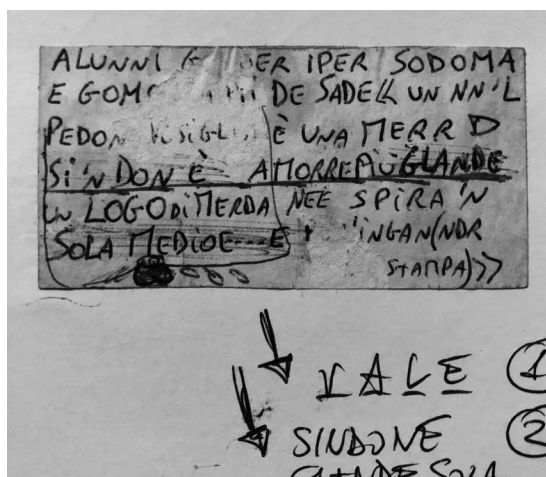 ALUNNI ER IPER SODOMA
E GOM DE SADE UN NN'L
PEDON È UNA MERR D
SI'N DON È AMORREPIÙGLANDE
LOGO DI MERDA NEE SPIRA 'N
SOLA MEDIOE---E 'INGAN(NDR
STAMPA)>>
VALE 1
SINDONE 2
GLANDE SOLA